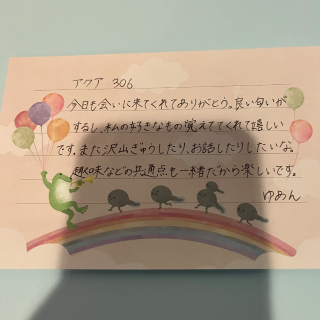 アクア 306
今日も会いに来てくれてありがとう。良い匂いが
するし、私の好きなもの覚えててくれて嬉しい
です。また沢山ぎゅうしたり、お話したりしたいな。
趣味などの共通点も一緒だから楽しいです。
ゆあん